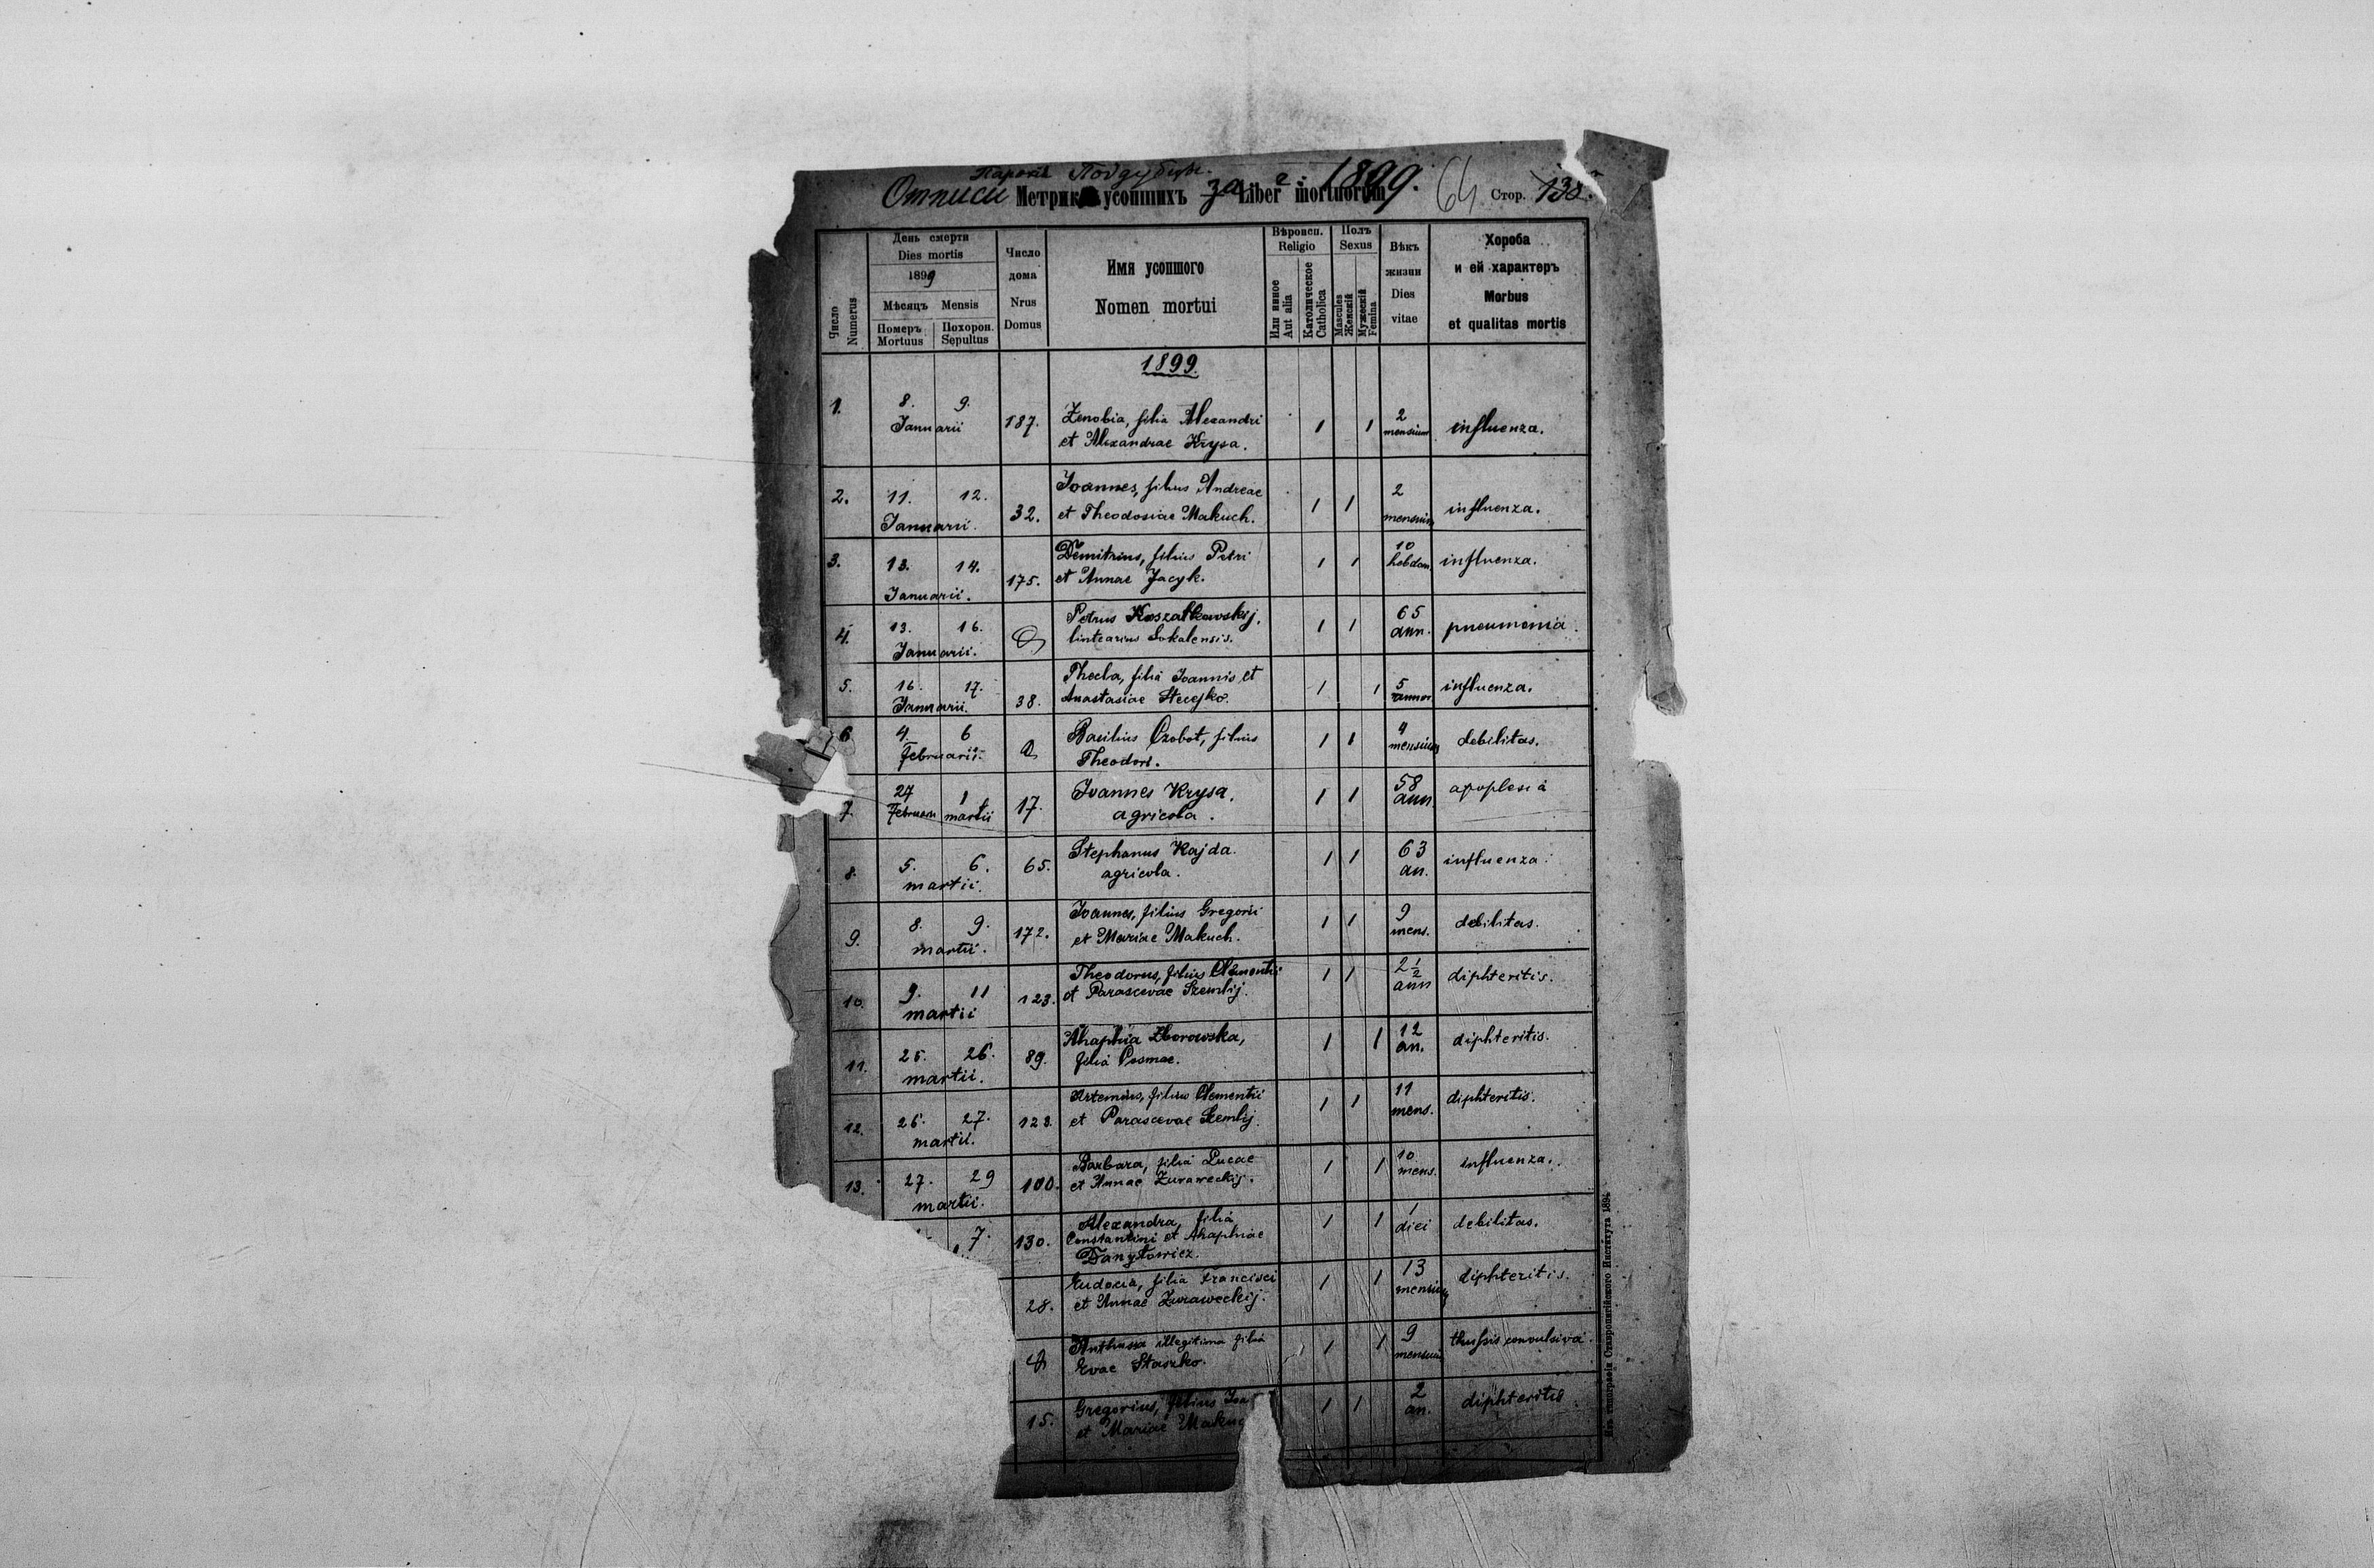 Парохія Поддубцѣ.
Отписи Метрик усопшихъ за Liber mortuorum 1899. 64 Стор. 138.
Число Numerus
День смерти
Dies mortis
1899
Мѣсяцъ Mensis
Померъ Mortuus
Похорон. Sepultus
Число дома
Nrus Domus
Имя усопшого
Nomen mortui
Вѣроисп.
Religio
Или инное Aut alia
Католическое Catholica
Полъ
Sexus
Mascules Женскій
Мужескій Femina
Вѣкъ жизни
Dies vitae
Хороба
и ей характеръ
Morbus
et qualitas mortis
1899.
1. 8. 9. Januarii 187. Zenobia, filia Alexandri
et Alexandrae Krysa. 1 1 2 mensium influenza.
2. 11. 12. Januarii. 32. Joannes, filius Andreae
et Theodosiae Makuch. 1 1 2 mensium influenza.
3. 13. 14. Januarii. 175. Demitrius, filius Petri
et Annae Jacyk. 1 1 10 hebdom. influenza.
4. 13. 16. Januarii. Petrus Koszatkowskij,
lintearius Sokalensis. 1 1 65 ann. pneumonia.
5. 16. 17. Januarii. 38. Thecla, filia Joannis et
Anastasiae Stecyko. 1 1 5 annor influenza.
6 4. 6 Februarii. Basilius Czobot, filius
Theodori. 1 1 4 mensium debilitas.
7. 27 Februarii 1 martii 17. Joannes Krysa,
agricola. 1 1 58 ann. apoplesia
8. 5. 6. martii. 65. Stephanus Kajda.
agricola. 1 1 63 an. influenza.
9. 8. 9. martii. 172. Joannes, filius Gregorii
et Mariae Makuch. 1 1 9 mens. debilitas.
10. 9. 11 martii 123. Theodorus, filius Clementii
et Parascevae Szemlij. 1 1 2½ ann diphteritis.
11. 25. 26. martii. 89. Ahaphia Zborowska,
filia Cosmae. 1 1 12 an. diphteritis.
12. 26. 27. martii. 123. Artemius, filius Clementii
et Parascevae Szemlij. 1 1 11 mens. diphteritis.
13. 27. 29 martii. 100. Barbara, filia Lucae
et Annae Zuraweckij. 1 1 10 mens. influenza.
7. 130. Alexandra, filia
Constantini et Ahaphiae
Danyłowicz. 1 1 1 diei debilitas.
28. Eudocia, filia Francisci
et Annae Zuraweckij. 1 1 13 mensium diphteritis.
Anthussa illegitima filia
Evae Staszko. 1 1 9 mensium thussis convulsiva.
15. Gregorius, filius Joa
et Mariae Makuc 1 1 2 an. diphteritis
Изъ типографіи Ставропигійского Института 189